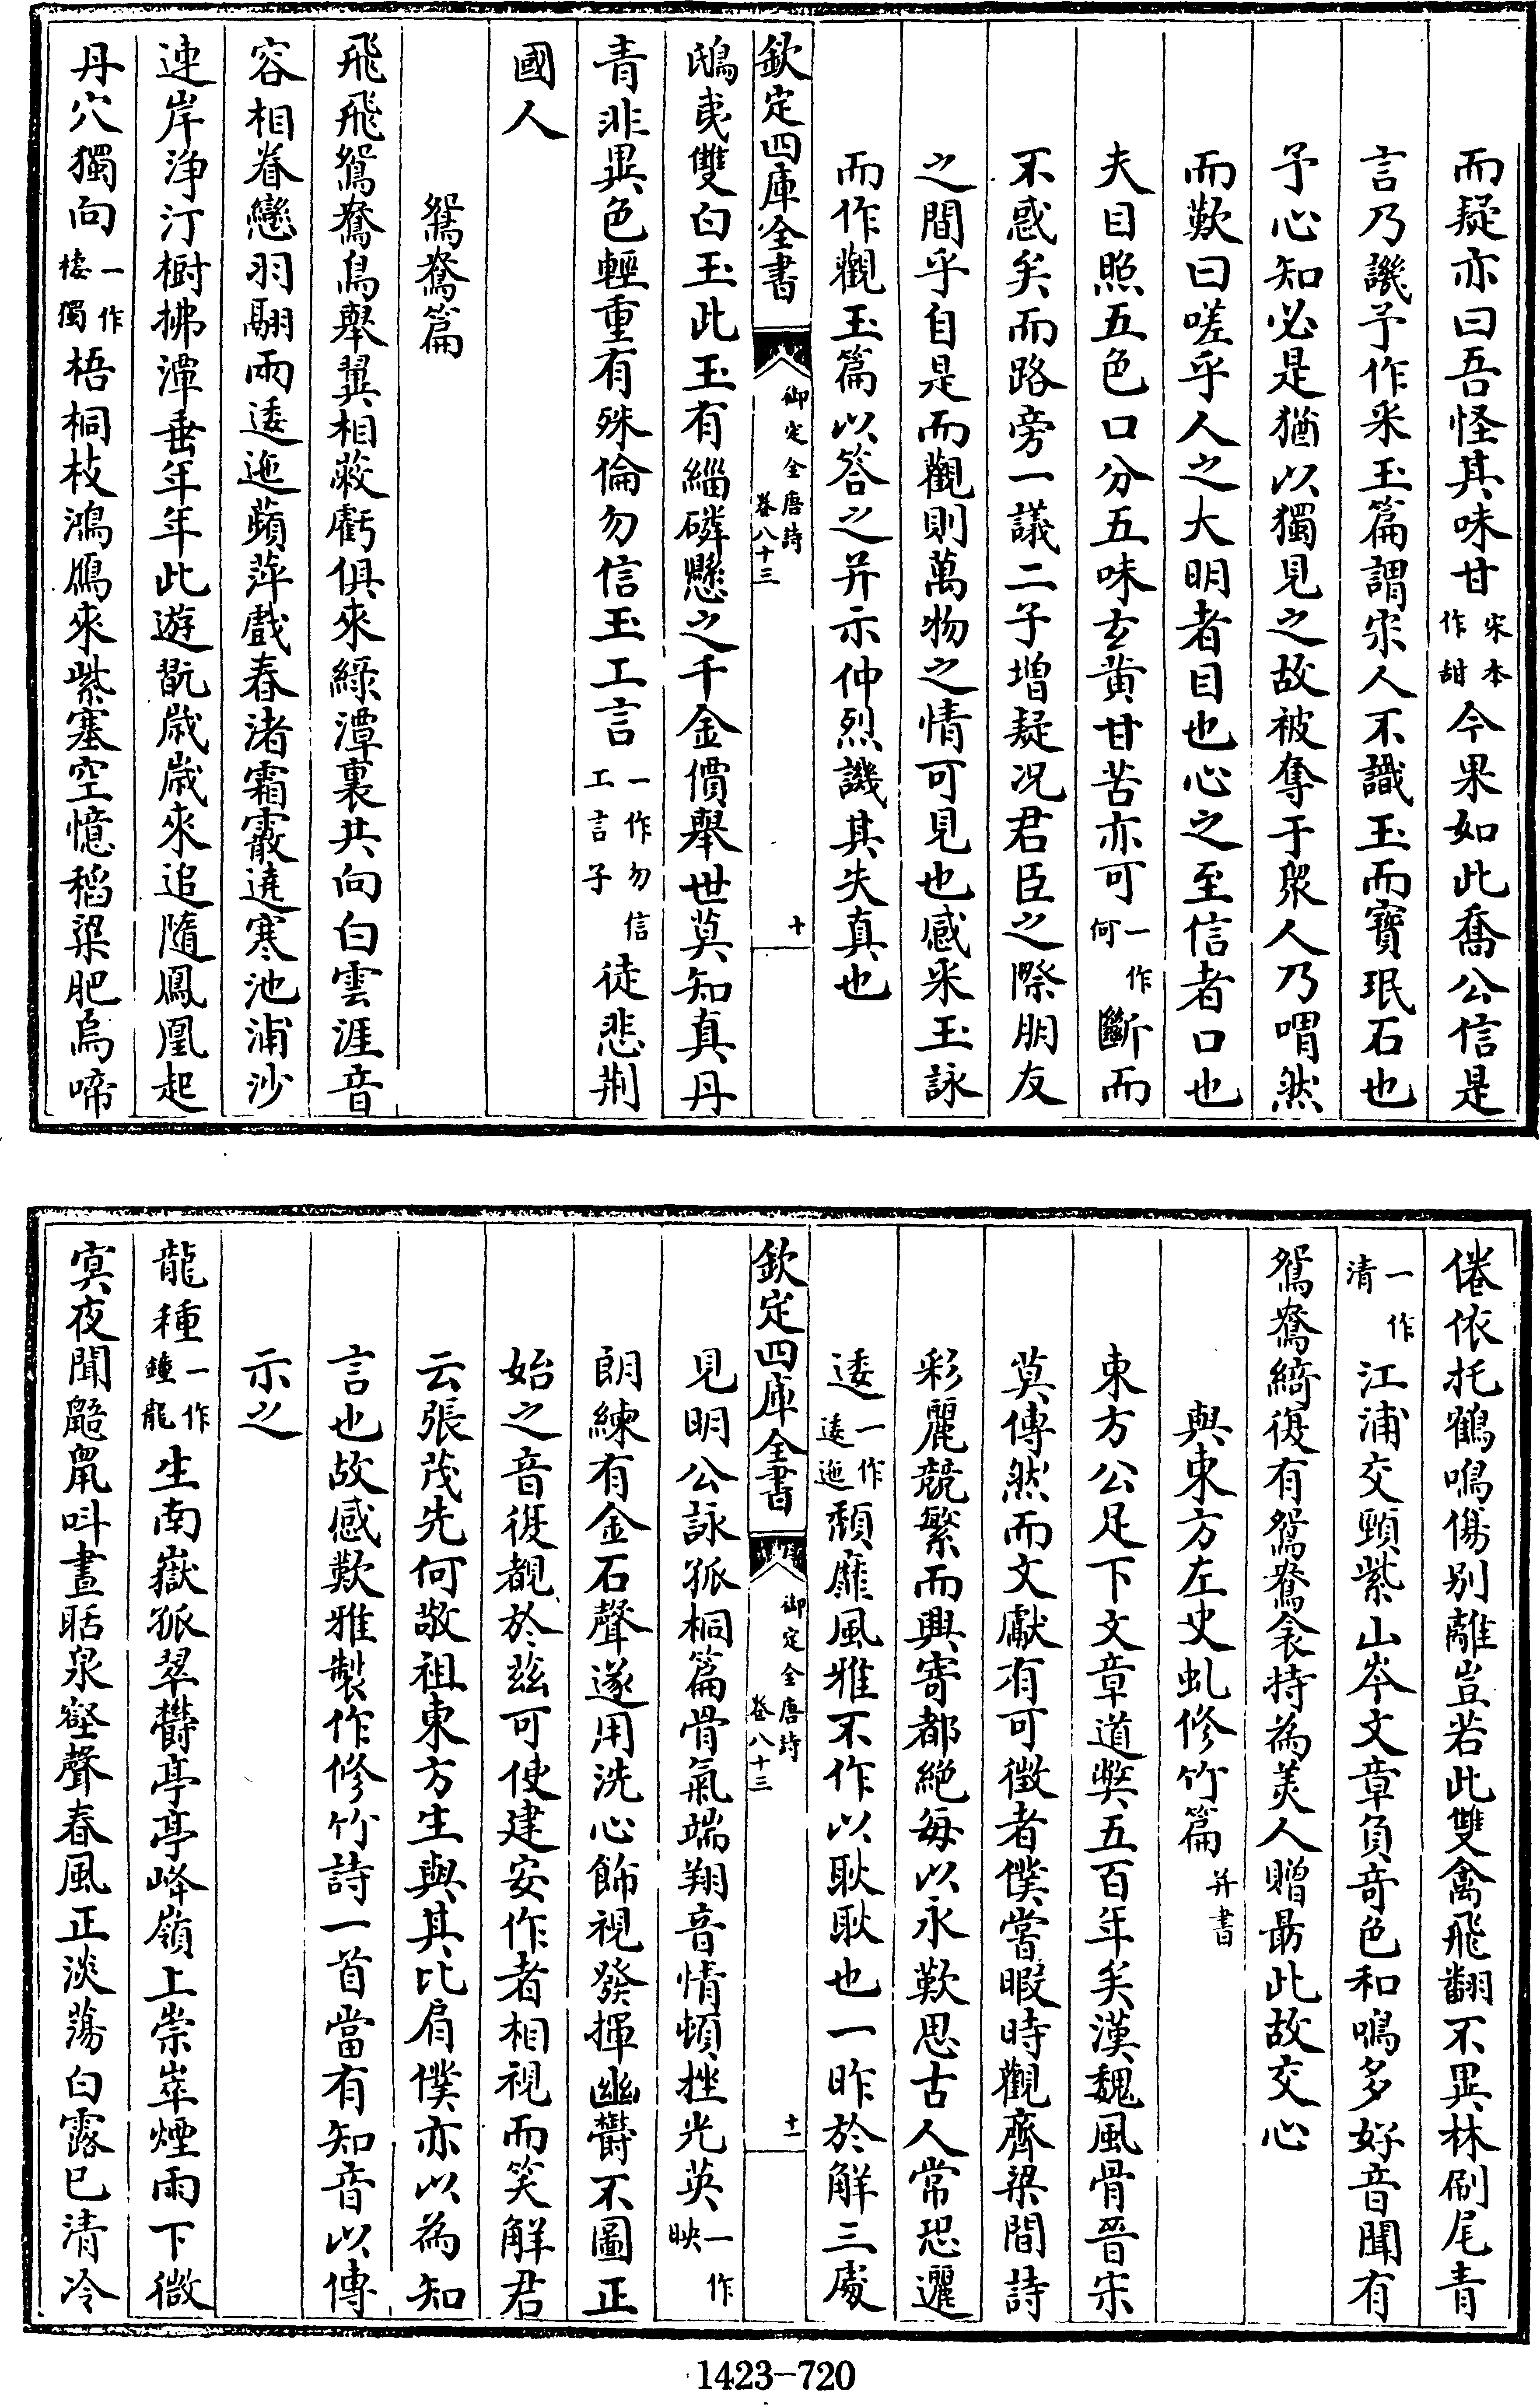 而疑亦曰吾怪其味甘宋本作甜今果如此喬公信是
言乃譏予作采玉篇謂宋人不識玉而寶珉石也
予心知必是猶以獨見之故被奪于衆人乃喟然
而歎曰嗟乎人之大明者目也心之至信者口也
夫目照五色口分五味玄黄甘苦亦可一作何斷而
不惑矣而路旁一議二子增疑况君臣之際朋友
之間乎自是而觀則萬物之情可見也感采玉詠
而作觀玉篇以答之并示仲烈譏其失真也
欽定四庫全書 御定全唐詩 卷八十三 十
鴟夷雙白玉此玉有緇磷懸之千金價舉世莫知真丹
青非異色輕重有殊倫勿信玉工言一作勿信工言子徒悲荆
國人
鴛鴦篇
飛飛鴛鴦鳥舉翼相蔽虧俱來綠潭裏共向白雲涯音
容相眷戀羽翮兩逶迤蘋萍戲春渚霜霰遶寒池浦沙
連岸浄汀樹拂潭垂年年此遊翫歲歲來追隨鳳凰起
丹穴獨向一作棲獨梧桐枝鴻鴈來紫塞空憶稻粱肥烏啼
倦依托鶴鳴傷别離豈若此雙禽飛翻不異林刷尾青
一作清江浦交頸紫山岑文章負奇色和鳴多好音聞有
鴛鴦綺復有鴛鴦衾持為美人贈勗此故交心
與東方左史虬修竹篇并書
東方公足下文章道弊五百年矣漢魏風骨晉宋
莫傳然而文獻有可徴者僕嘗暇時觀齊梁間詩
彩麗競繁而興寄都絶每以永歎思古人常恐邐
逶一作逶迤頽靡風雅不作以耿耿也一昨於解三處
欽定四庫全書 御定全唐詩 卷八十三 十一
見明公詠孤桐篇骨氣端翔音情頓挫光英一作映
朗練有金石聲遂用洗心飾視發揮幽鬱不圖正
始之音復覩於兹可使建安作者相視而笑解君
云張茂先何敬祖東方生與其比肩僕亦以為知
言也故感歎雅製作修竹詩一首當有知音以傳
示之
龍種一作鐘龍生南嶽孤翠鬱亭亭峰嶺上崇崒煙雨下微
㝠夜聞鼯鼠叫晝聒泉壑聲春風正淡蕩白露已清冷
1423-720